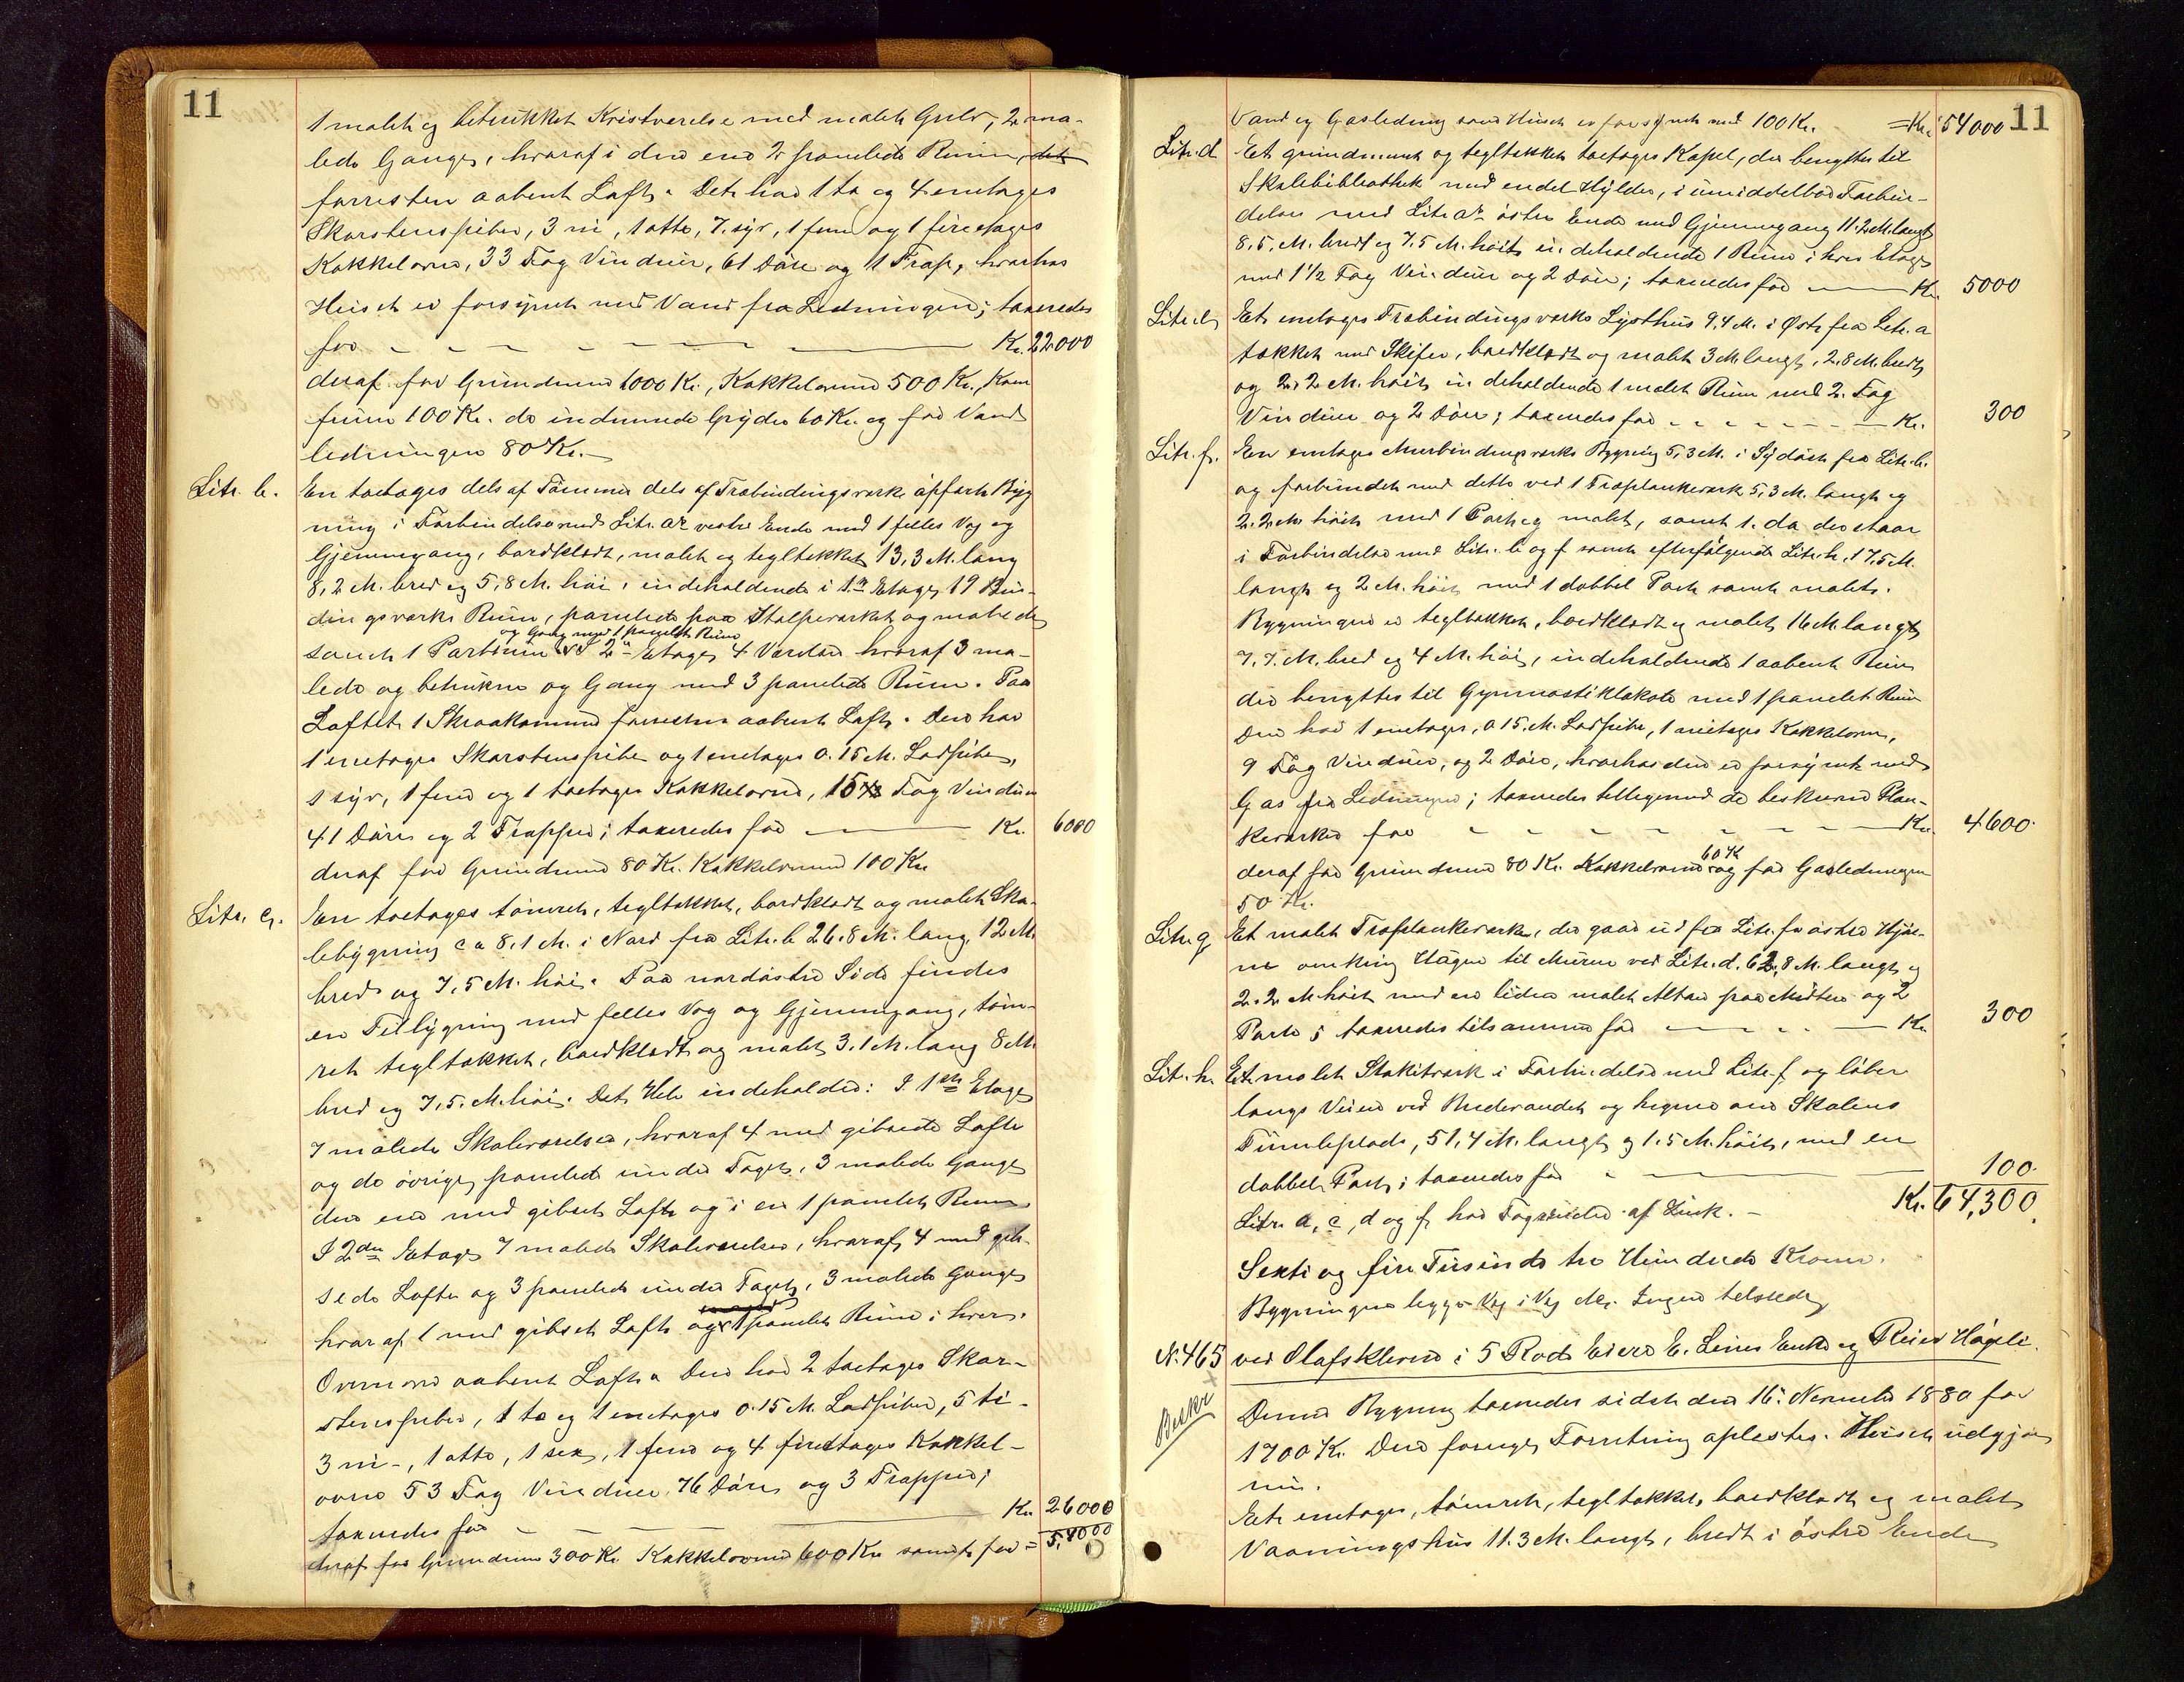 11
1 malet og betrukket Kvistværelse med malet Gulv, 2 ma-
lede Gange, hvoraf i den ene 2 panelede Rum, det
forresten aabent Loft. Det har 1 to og 4 enetages
Skorstenspiber, 3 ni, 1 otte, 7 syv, 1 fem og 1 fireetages
Kakkelovne, 33 Fag Vinduer, 61 Döre og 1 Trap, hvorhos
Huset er forsynet med Vand fra Ledningen; taxeredes
for Kr. 22000
deraf for Grundmur 1000 Kr., Kakkelovne 500 Kr., Kom
furer 100 Kr. de indmurede Gryder 60 Kr. og for Vand
ledningen 80 Kr.
Litr. b. En toetages dels af Tömmer dels af Træbindingsværk opfört Byg
ning i Forbindelse med Litr. a's vestre Ende med 1 fælles Væg og
Gjennemgang, bordklædt, malet og tegltækket 13,3 M. lang
8,2 M. bred og 5,8 M. höi, indeholdende i 1ste Etage 19 Bin-
dingsværks Rum, panelede paa Stolpeværket og malede
og Gang med 1 panelet Rum
samt 1 Portrum. I 2den Etage 4 Værelser hvoraf 3 ma-
lede og betrukne og Gang med 3 panelede Rum. Paa
Loftet 1 Skraakammer forresten aabent Loft. Den har
1 enetages Skorstenspibe og 1 enetages 0.15 M. Lodpibe,
1 syv, 1 fem og 1 toetages Kakkelovne, 15 Fag Vinduer
41 Döre og 2 Trapper; taxeredes for Kr. 6000
deraf for Grundmur 80 Kr. Kakkelovne 100 Kr.
Litr. c. En toetages tömret, tegltækket, bordklædt og malet Sko-
lebygning ca 8,1 M. i Nord fra Litr. b 26,8 M. lang, 12 M.
bred og 7,5 M. höi. Paa nordöstre Side findes
en Tilbygning med fælles Væg og Gjennemgang, töm-
ret tegltækket, bordklædt og malet 3,1 M. lang 8 M.
bred og 7,5 M. höi. Det Hele indeholder: I 1ste Etage
7 malede Skoleværelser, hvoraf 4 med gibsede Lofte
og de övrige panelede under Taget, 3 malede Gange
den ene med gibset Loft og i en 1 panelet Rum
I 2den Etage 7 malede Skoleværelser, hvoraf 4 med gib-
sede Lofter og 3 panelede under Taget, 3 malede Gange
hvoraf 1 med gibset Loft og 1 panelet Rum i hver.
Ovenover aabent Loft. Den har 2 toetages Skor-
stenspiber, 1 to og 1 enetages 0.15 M. Lodpiber, 5 ti-
3 ni-, 1 otte, 1 sex, 1 fem og 4 fireetages Kakkel-
ovne 53 Fag Vinduer, 76 Döre og 3 Trapper;
taxeredes for Kr. 26000
deraf for Grundmur 300 Kr. Kakkelovne 600 Kr. samt for = 54000
11
Vand og Gasledning som Huset er forsynet med 100 Kr. = Kr. 54000
Litr. d Et grundmuret og tegltækket toetages Kapel, der benyttes til
Skolebibliothek med endel Hylder, i umiddelbar Forbin-
delse med Litr. a's östre Ende med Gjennemgang 11.2 M. langt
8.5. M. bredt og 7.5 M. höit, indeholdende 1 Rum i hver Etage
med 11/2 Fag Vinduer og 2 Döre; taxeredes for Kr. 5000
Litr. e Et enetages Træbindingsværks Lysthus 9.4 M. i Öst fra Litr. a
tækket med Skifer, bordklædt og malet 3 M. langt, 2.8 M. bredt
og 2.2 M. höit, indeholdende 1 malet Rum med 2 Fag
Vinduer og 2 Döre; taxeredes for Kr. 300
Litr. f. En enetages Murbindingsværks Bygning 5,3 M. i Sydöst fra Litr. b.
og forbundet med dette ved 1 Træplankeværk 5,3 M. langt og
2.2 M. höit med 1 Port og malet, samt 1. do der staar
i Forbindelse med Litr. b og f samt efterfölgende Litr. h, 17,5 M.
langt og 2 M. höit med 1 dobbel Port samt malet.
Bygningen er tegltækket, bordklædt og malet 16 M. langt
7,7 M. bred og 4 M. höi, indeholdende 1 aabent Rum
der benyttes til Gymnastiklokale med 1 panelet Rum
Den har 1 enetages, 0.15 M. Lodpibe, 1 nietages Kakkelovn,
9 Fag Vinduer, og 2 Döre, hvorhos den er forsynet med
Gas fra Ledningen; taxeredes tilligemed de beskrevne Plan-
keværker for Kr. 4600
60 Kr
deraf for Grundmur 80 Kr. Kakkelovne og for Gasledningen
50 Kr.
Litr. g Et malet Træplankeværk, der gaar ud fra Litr. f's östre Hjör-
ne omkring Hagen til Muren ved Litr. d. 62,8 M. langt og
2.2 M. höit med en liden malet Altan paa Midten og 2
Porte; taxeredes tilsammen for Kr. 300
Litr. h. Et malet Stakitværk i Forbindelse med Litr. f og löber
langs Veien ved Brædevandet og hegner om Skolens
Tumleplads, 51,4 M. langt og 1.5 M. höit, med en
dobbel Port; taxeredes for 100
Litr. a, c, d og f har Tagrender af Zink. Kr. 64,300
Sexti og fire Tusinde tre Hundrede Kroner.
Bygningen ligger Væg i Væg Nei. Ingen tilstede
N. 465 ved Olafskleven i 5 Rode Eiere E. Leires Enke og Reier Högeli.
Beskr
Denne Bygning taxeredes sidst den 16. November 1880 for
1700 Kr. Den forrige Forretning oplæstes. Huset udgjör
nu.
Et enetages, tömret, tegltækket, bordklædt og malet
Vaaningshus 11.3 M. langt, bredt i östre Ende